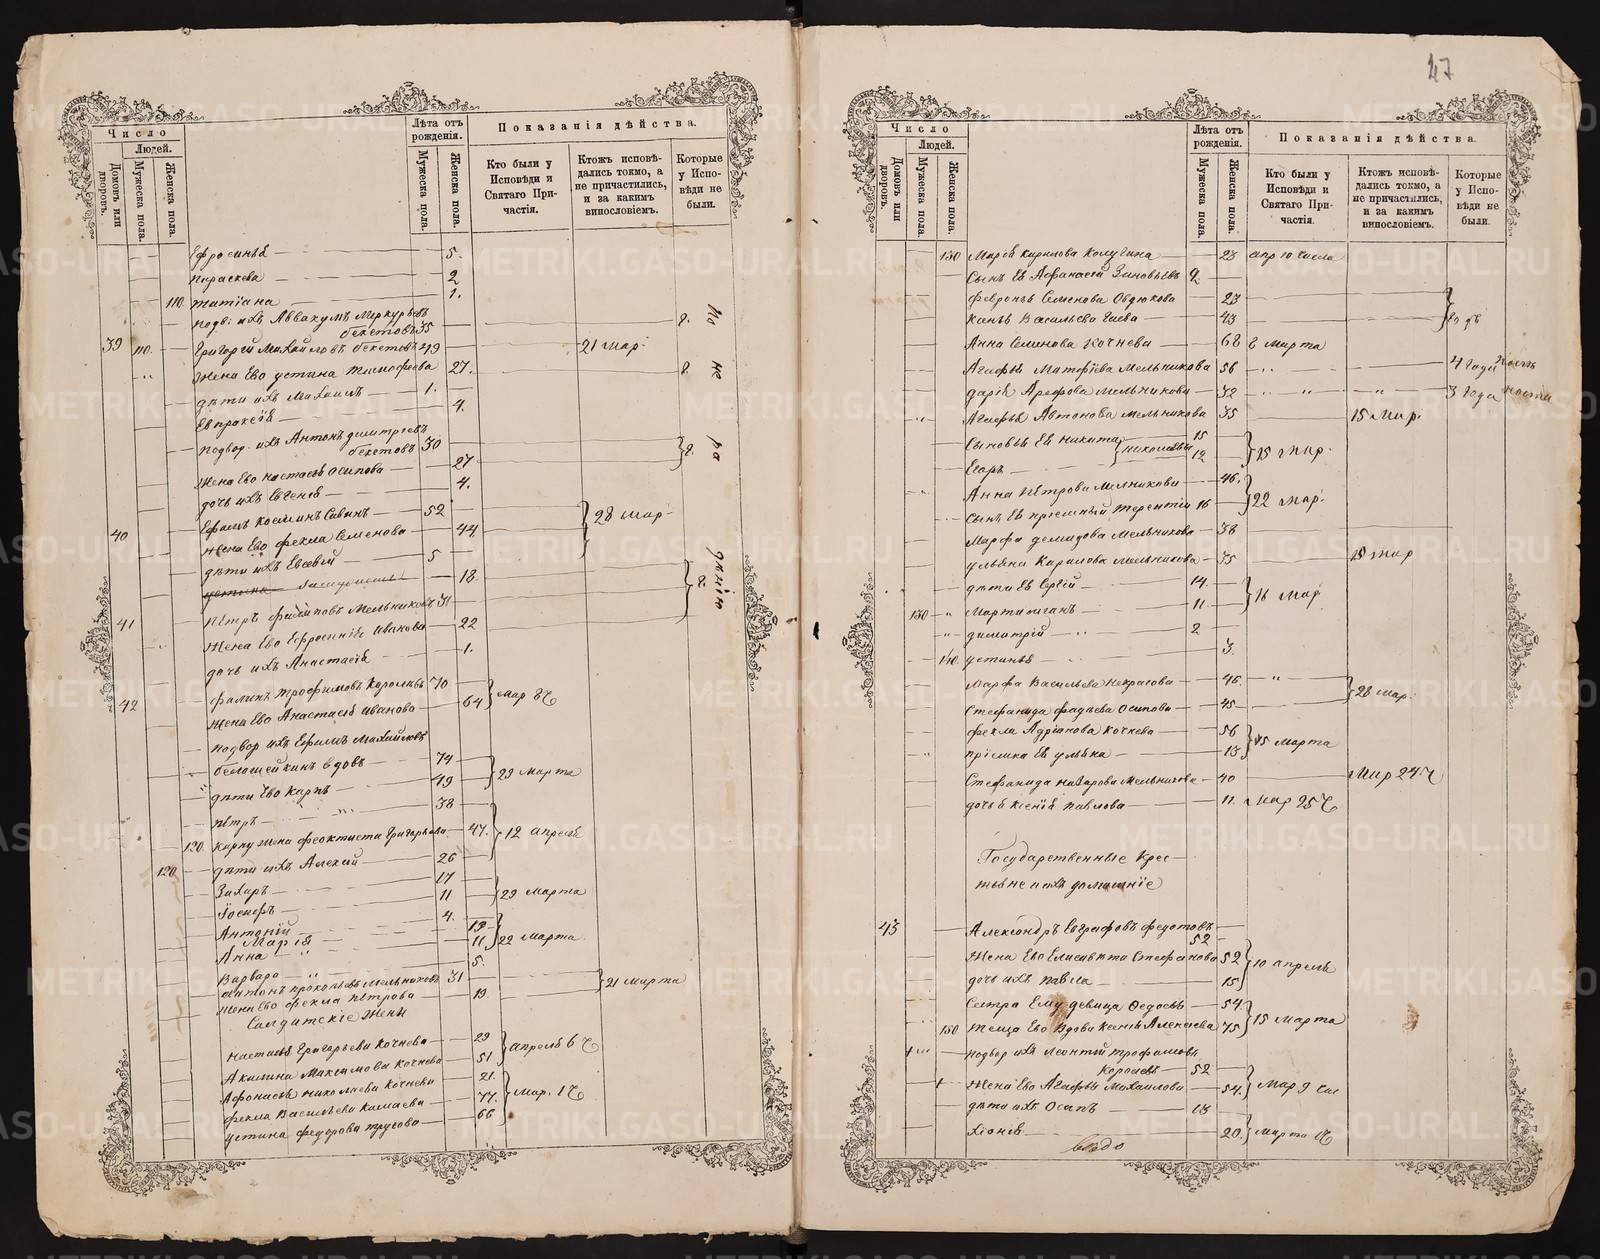 Число
Людей.
Домовъ или дворовъ.
Мужеска пола.
Женска пола.
Лѣта отъ рожденія.
Мужеска пола.
Женска пола.
Показанія дѣйства.
Кто были у Исповѣди и Святаго При-частія.
Ктожъ исповѣ-дались токмо, а не причастились, и за какимъ винословіемъ.
Которые у Испо-вѣди не были.
Ефросинья 5.
Параскева 2
110 Татіана 1.
подв: ихъ Аввакумъ Меркурьевъ
бекетовъ 35
39 110. Григорій Михайловъ бекетовъ 49 21 мар:
Жена Ево устина тимофеева 27.
дѣти ихъ Михаилъ 1.
Евпраксія 4.
подвор. ихъ Антонъ дмитріевъ
бекетовъ 30
Жена Ево настасья осипова 27
дочь ихъ Евгенія 4.
40 Ефимъ Косминъ Савинъ 52 28 мар
Жена Ево фекла Семенова 44
дѣти ихъ Евсевій 5
устина 18.
41 Пётръ филиповъ Мельниковъ 31
Жена Ево Ефросинія Иванова 22
дочь ихъ Анастасія 1.
По не ра дѣнію
42 трофимовъ Королевъ 70 мар 8 Ч
Жена Ево Анастасія Иванова 64
подвор ихъ Ефимъ Михайловъ
белошейкинъ вдовъ 74 29 марта
дѣти Ево Карпъ 49
пётръ 38
Карпу жена феоктиста Григорьева 47. 12 апреля
120 дѣти ихъ Алексій 26
Захаръ 17 29 марта
Іосифъ 11
Антоній 4.
Марія 19 22 марта
Анна 11
Варвара 5.
Антонъ прокопьевъ Мельниковъ 31 21 марта
Жена Ево фекла пётрова 19
Салдатскіе Жены
настасья Григорьева Кочнева 29 апреля 6 Ч
Акилина Максимова Кочнева 51
Афонасья николаева Кочнева 21. Мар. 1 Ч
фекла Васильева Камаева 77.
устина федорова трусова 66
47
Число
Людей.
Домовъ или дворовъ.
Мужеска пола.
Женска пола.
Лѣта отъ рожденія.
Мужеска пола.
Женска пола.
Показанія дѣйства.
Кто были у Исповѣди и Святаго При-частія.
Ктожъ исповѣ-дались токмо, а не причастились, и за какимъ винословіемъ.
Которые у Испо-вѣди не были.
130 Марья Кирилова Калугина 23 апр 10 числа
Сынъ Ея Афанасій Зиновьевъ 2.
февронья Семенова Овдюкова 23
Васильева Гаева 43
Анна Семенова Кочнева 68 2 марта
Агафья Матфіева Мельникова 56 4 года
дарія Арефова Мельникова 32 3 года
Агафья Автонова Мельникова 35 15 мар:
Сыновья Ея Никита 15 25 мар.
николаевы
Егоръ 12
Анна Петрова Мелникова 46. 22 мар.
Сынъ Ея пріемный Терентій 16
Марфа демидова Мельникова 38
ульяна Карилова Мельникова 35 15 мар
дѣти Ея Сергій 14. 16 мар
130 Мартиніанъ 11
димитрій 2
140 устинья 3.
Марфа Васильева Некрасова 46. 28 мар.
Стефанида фадѣева Осипова 45
фекла Адріанова Кочнева 56 15 марта
ульяна 13
Стефанида Назарова Мельникова 40 Мар 24 Ч
дочь Ея Ксенія павлова 11. Мар 25 Ч
Государственные Крес-
тьяне и ихъ домашніе
43 Александръ Евграфовъ федотовъ
52
Жена Ево Елисавета Стефанова 52 10 апреля
дочь ихъ павла 15
Сестра Ему девица Федосья 54. 15 марта
150 Теща Ево Вдова Ксенія Алексеева 75
подвор ихъ Леонтій трофимовъ
Королевъ 52
Жена Ево Агафья Михаилова 54. Мар 9 чис
дѣти ихъ Осипъ 18
Хіонія 20. марта 1 Ч